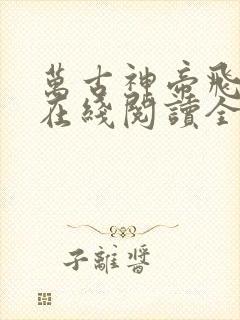 萬古神帝飛
在綫閱讀全
子離醬